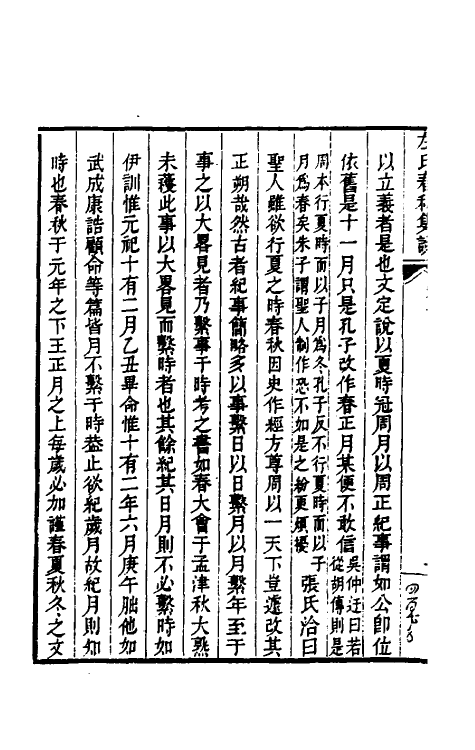 左氏春秋集說
以立義者是也文定說以夏時冠周月以周正紀事謂如公卽位
依舊是十一月只是孔子改作春正月某便不敢信吳仲迂曰若從胡傳則是
周本行夏時而以子月爲冬孔子反不行夏時而以子月爲春矣朱子謂聖人制作恐不如是之紛更煩擾張氏洽曰
聖人雖欲行夏之時春秋因史作經方尊周以一天下豈遽改其
正朔哉然古者紀事簡略多以事繫日以日繫月以月繫年至于
事之以大畧見者乃繫事于時考之書如春大會于孟津秋大熟
未穫此事以大畧見而繫時者也其餘紀其日月則不必繫時如
伊訓惟元祀十有二月乙丑畢命惟十有二年六月庚午朏他如
武成康誥顧命等篇皆月不繫于時葢止欲紀歲月故紀月則知
時也春秋于元年之下王正月之上每歲必加謹春夏秋冬之文